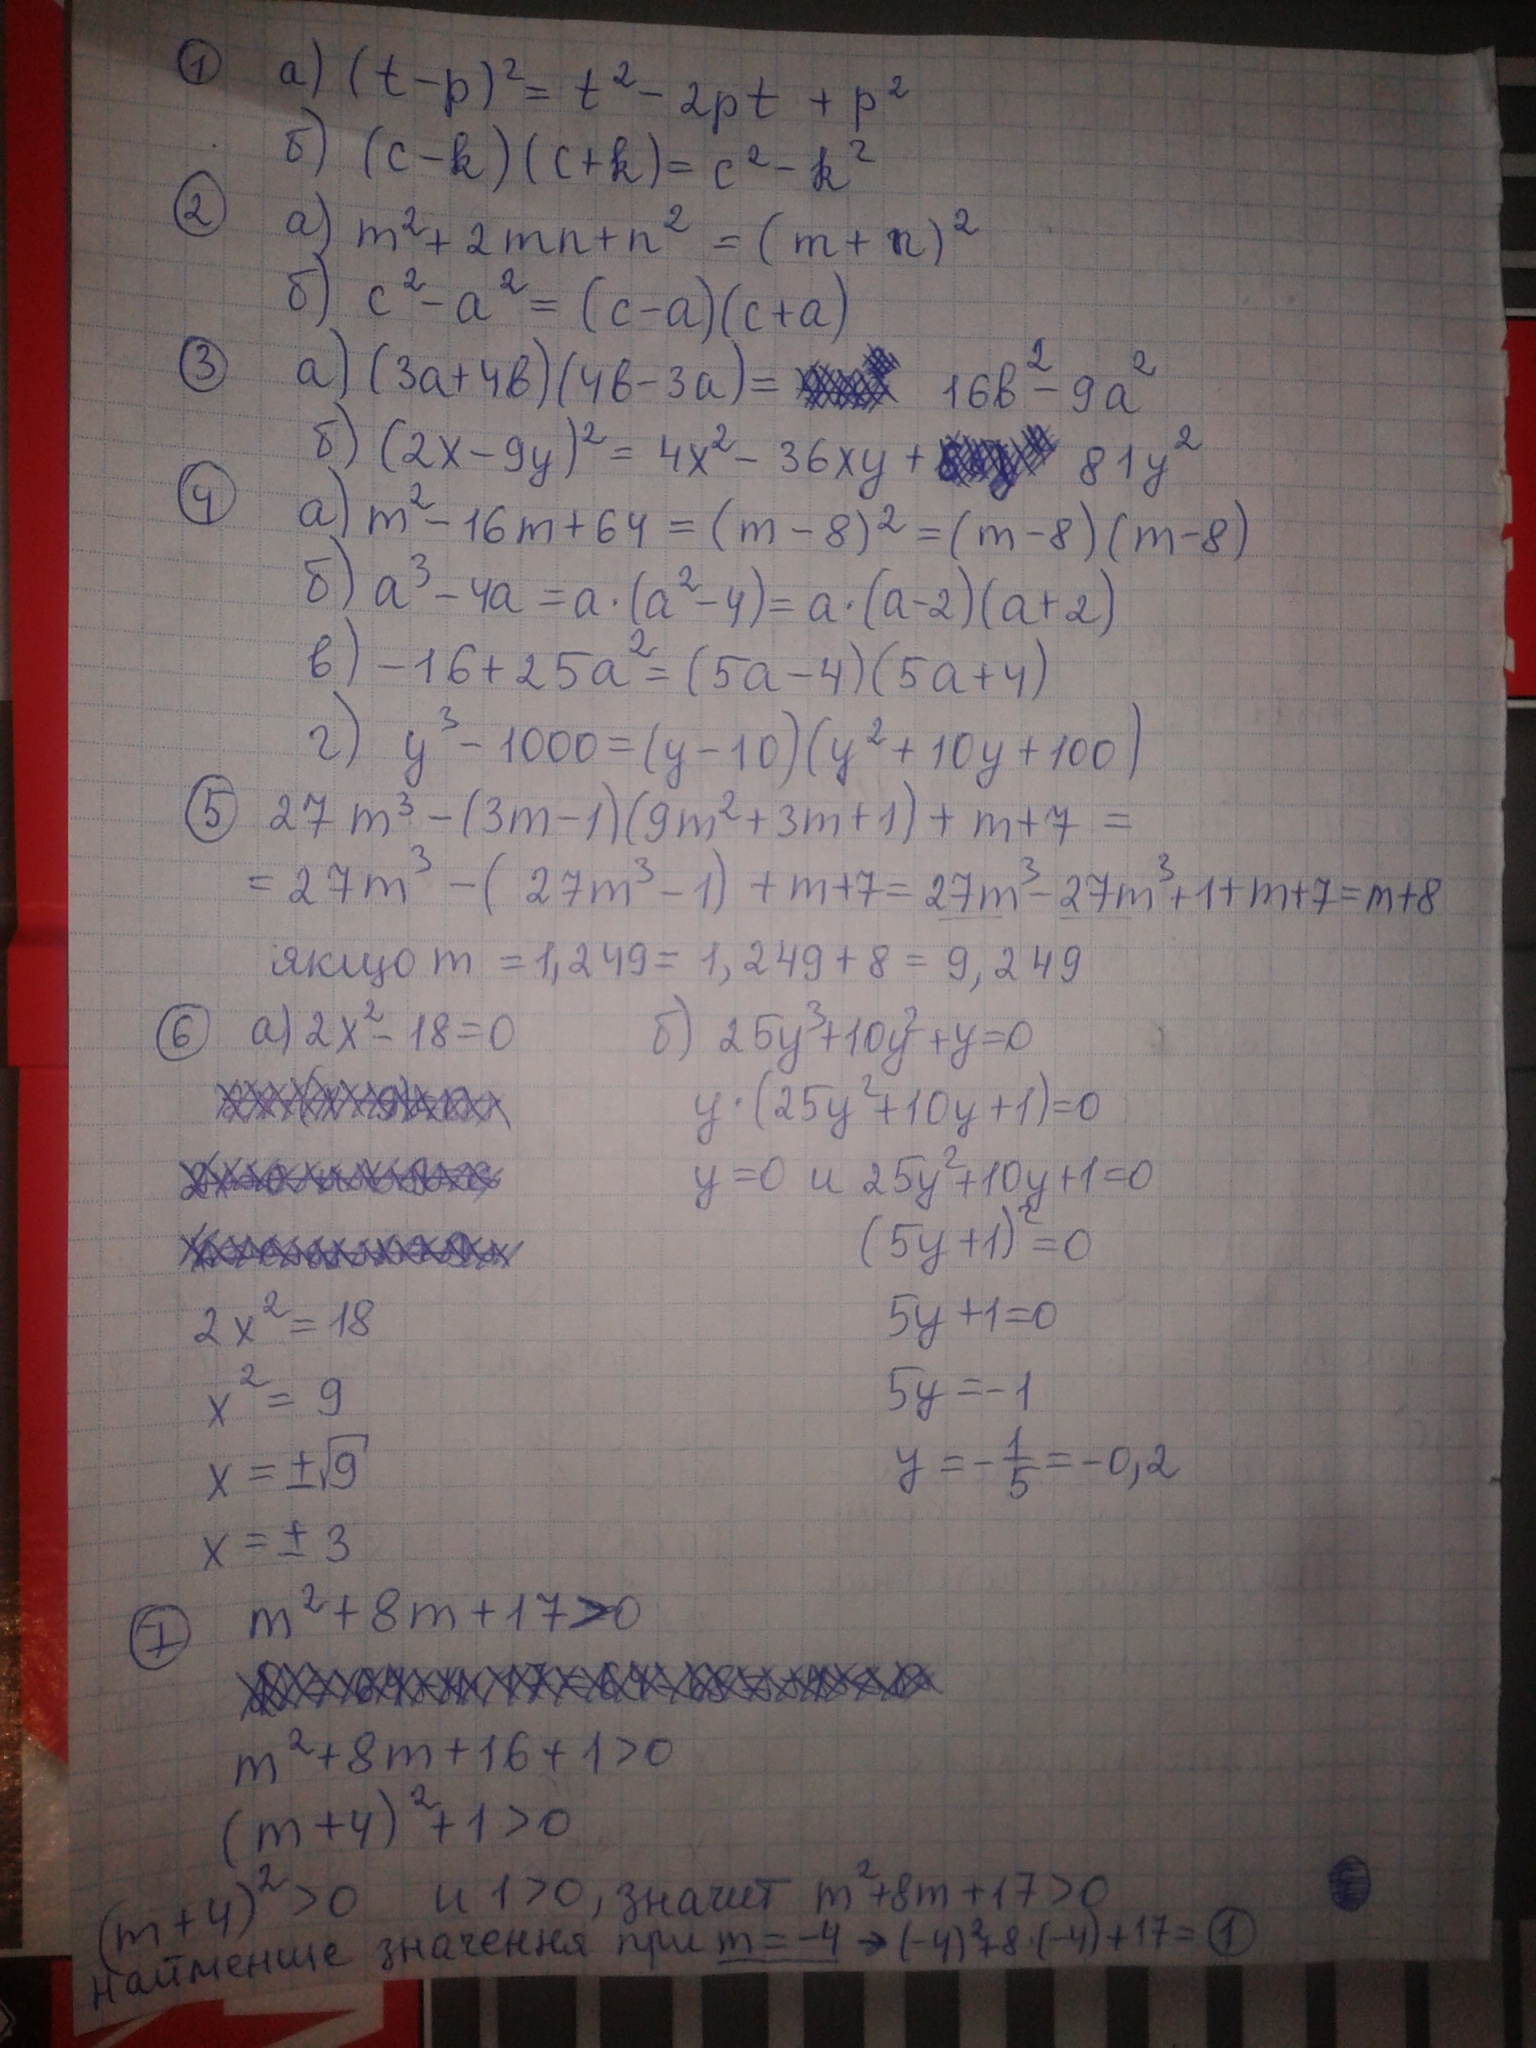 1 а) (t-p)² = t² - 2pt + p²
б) (c-k)(c+k) = c² - k²
2 а) m² + 2mn + n² = (m+n)²
б) c² - a² = (c-a)(c+a)
3 а) (3a+4b)(4b-3a) = 16b² - 9a²
б) (2x-9y)² = 4x² - 36xy + 81y²
4 а) m² - 16m + 64 = (m-8)² = (m-8)(m-8)
б) a³ - 4a = a·(a²-4) = a·(a-2)(a+2)
в) -16 + 25a² = (5a-4)(5a+4)
г) y³ - 1000 = (y-10)(y²+10y+100)
5 27m³ - (3m-1)(9m²+3m+1) + m+7 =
= 27m³ - (27m³-1) + m+7 = 27m³ - 27m³ + 1 + m + 7 = m+8
якщо m = 1,249 = 1,249 + 8 = 9,249
6 а) 2x² - 18 = 0
2x² = 18
x² = 9
x = ±√9
x = ± 3
б) 25y³ + 10y² + y = 0
y·(25y²+10y+1) = 0
y = 0 и 25y²+10y+1=0
(5y+1)² = 0
5y+1=0
5y = -1
y = -1/5 = -0,2
7 m² + 8m + 17 > 0
m² + 8m + 16 + 1 > 0
(m+4)² + 1 > 0
(m+4)² > 0 и 1 > 0, значит m²+8m+17>0
найменше значення при m = -4 → (-4)²+8·(-4)+17 = 1